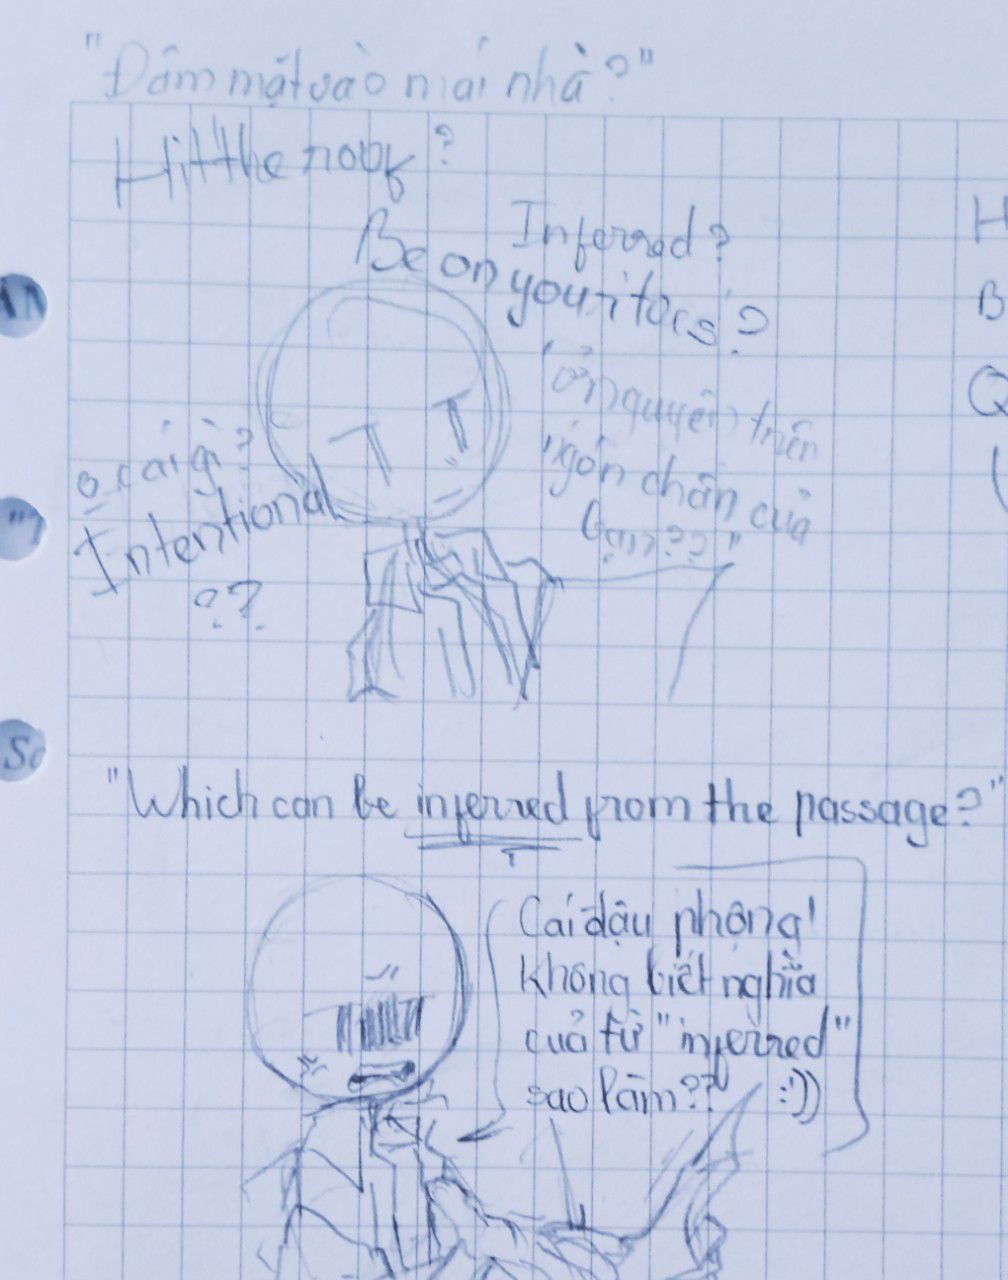 "Đâm mặt vào mái nhà?"
Hit the roof?
Inferred?
Be on your toes?
quyên trên
ngón chân của
bạn??"
cái gì?
Intentional
??
"Which can be inferred from the passage?"
Cái đậu phộng!
Không biết nghĩa
của từ "inferred"
sao làm?? :'))
H
B
Q